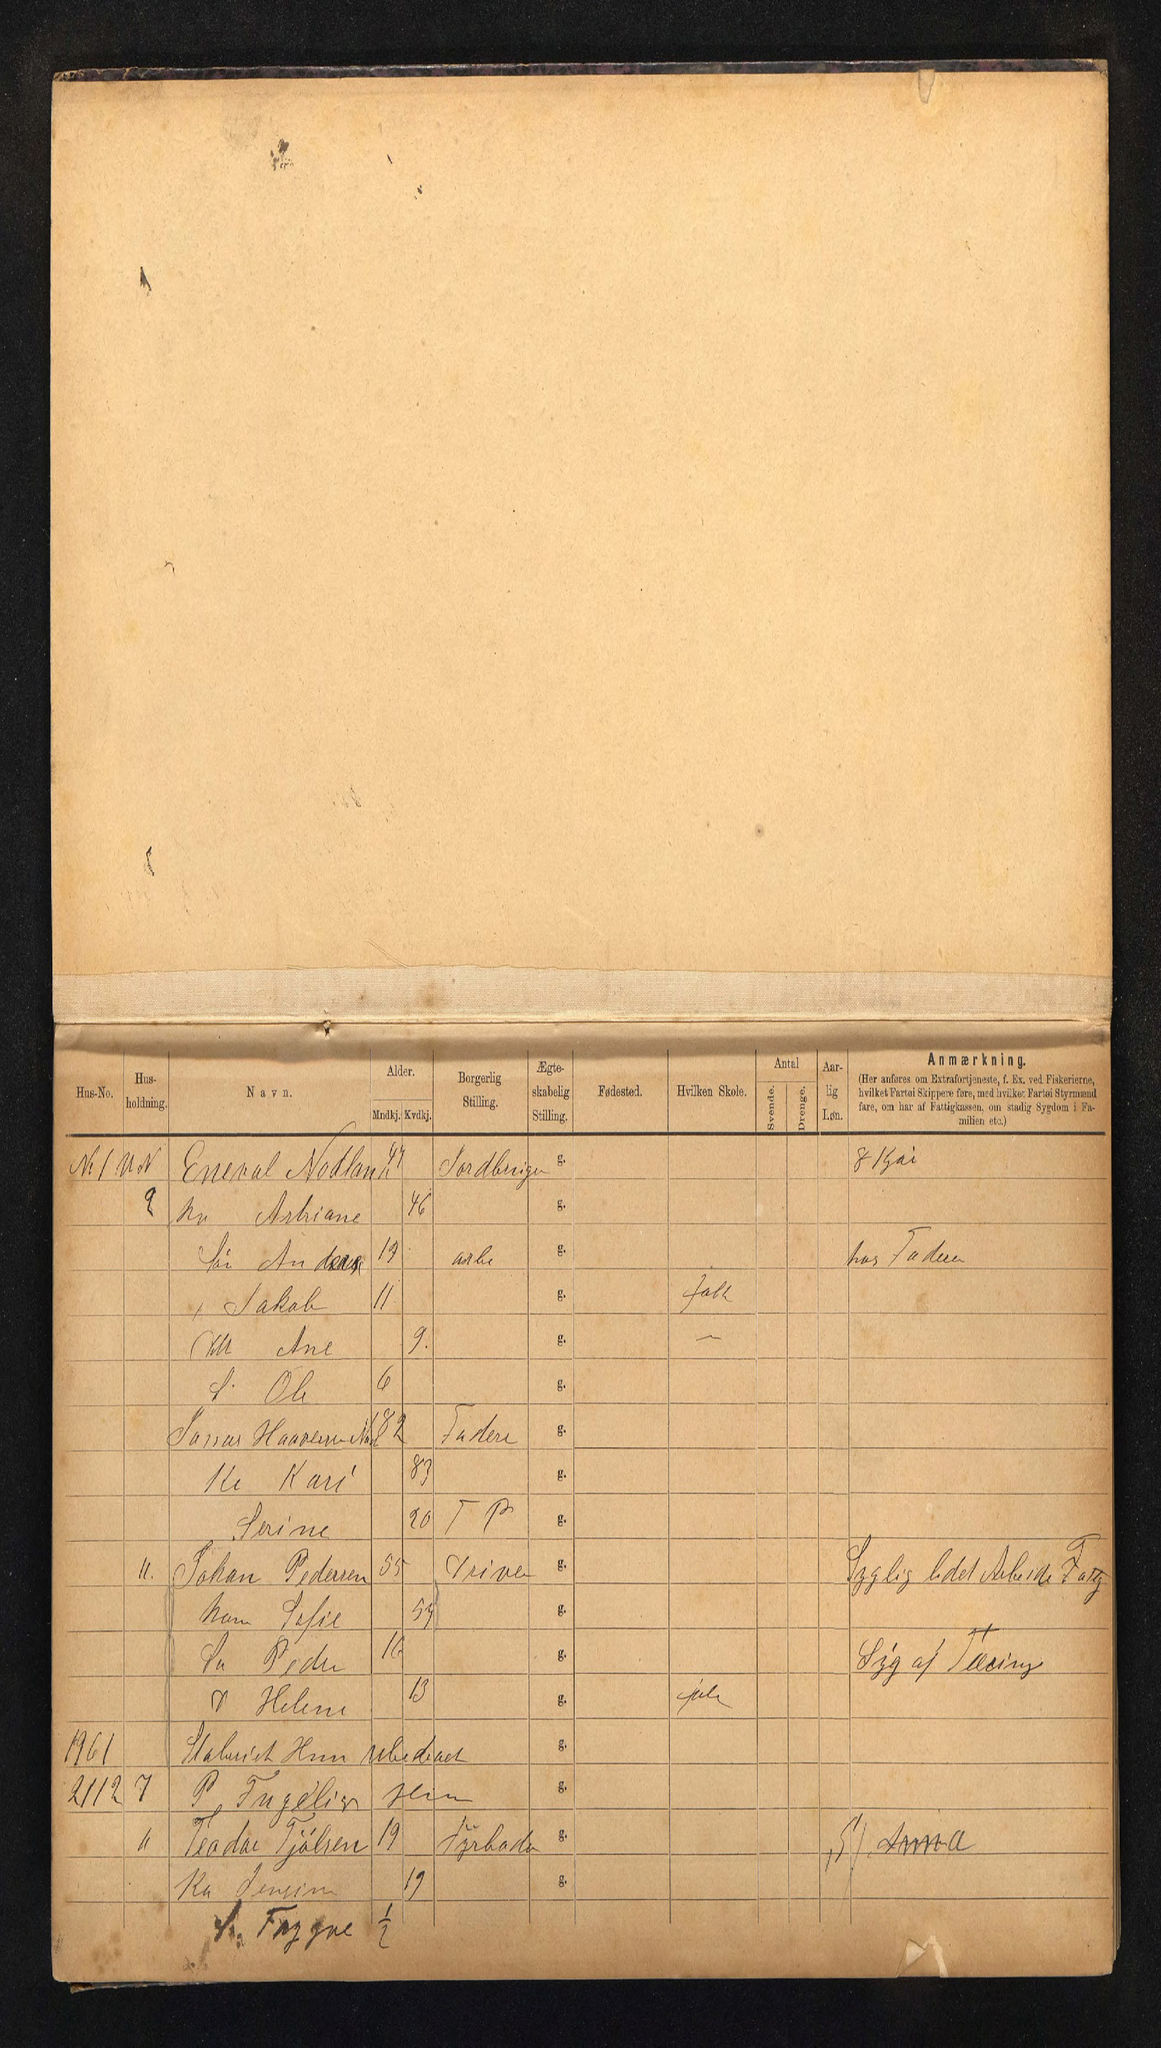 Hus-No. Hus-holdning. Navn. Alder. Mndkj. Kvdkj. Borgerlig Stilling. Ægte-skabelig Stilling. Fødested. Hvilken Skole. Antal Svende. Drenge. Aar-lig Løn. Anmærkning.
(Her anføres om Extrafortjeneste, f. Ex. ved Fiskerierne, hvilket Fartøi Skippere føre, med hvilket Fartøi Styrmænd fare, om har af Fattigkassen, om stadig Sygdom i Fa-milien etc.)
No 1 Eneval Nodland 47 Jordbruger g.
2 Ku Astriane 46 g.
Sø Andreas 19 arbe g. hos Faderen
, Jakob 11 g. folk
Ane 9. g. —
S. Ole 6 g.
Haaversen 82 Fadere g.
Ke Kari 83 g.
Serine 20 T P g.
11. Johan Pedersen 55 Driver g. Syglig lidet Arbeide Fattg
Kone Sofie 54 g.
Sø Peder 16 g. Syg af Tæring
D Helene 13 g. folk
1961 g.
2112 7 P. g.
11 Teodor Tjølsen 19 Fyrbøder g.
Ku Jensine 19 g.
S. Trygve 1/2